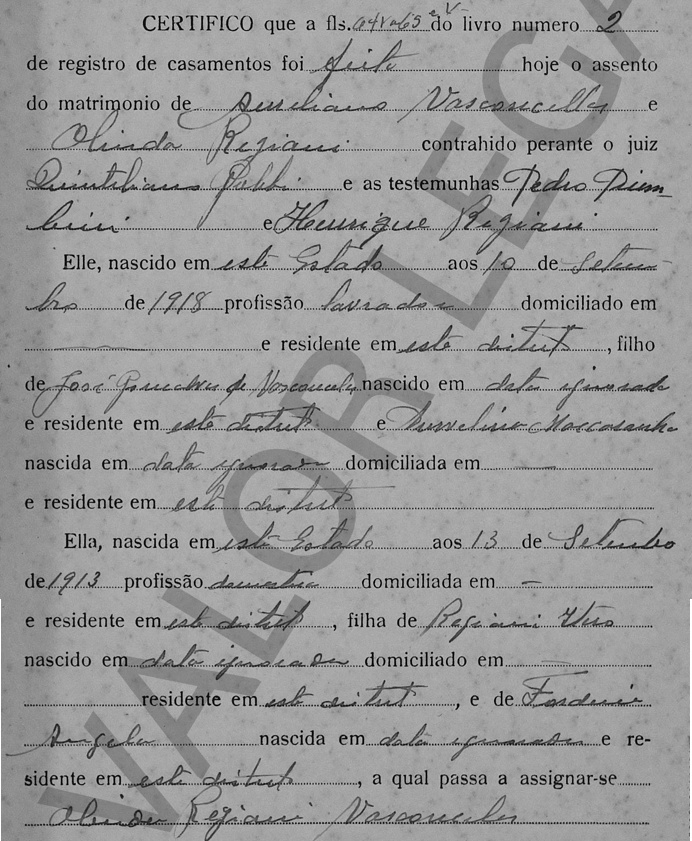 CERTIFICO que a fls. 64v a 65 e v. do livro numero 2
de registro de casamentos foi feito hoje o assento
do matrimonio de Aureliano Vasconcellos e
Olinda Regiani contrahido perante o juiz
Quintiliano e as testemunhas Pedro Piem-
e Henrique Regiani
Elle, nascido em este Estado aos 10 de Setem-
bro de 1918 profissão lavrador domiciliado em
e residente em este district, filho
de José Gonçalves de Vasconcelos nascido em data ignorada
e residente em este district e
nascida em data ignorada domiciliada em
e residente em este district
Ella, nascida em este Estado aos 13 de Setembro
de 1913 profissão domestica domiciliada em
e residente em este district, filha de Regiani
nascido em data ignorada domiciliado em
residente em este district, e de
Angela nascida em data ignorada e re-
sidente em este district, a qual passa a assignar-se
Olinda Regiani Vasconcelos
VALOR LEGA